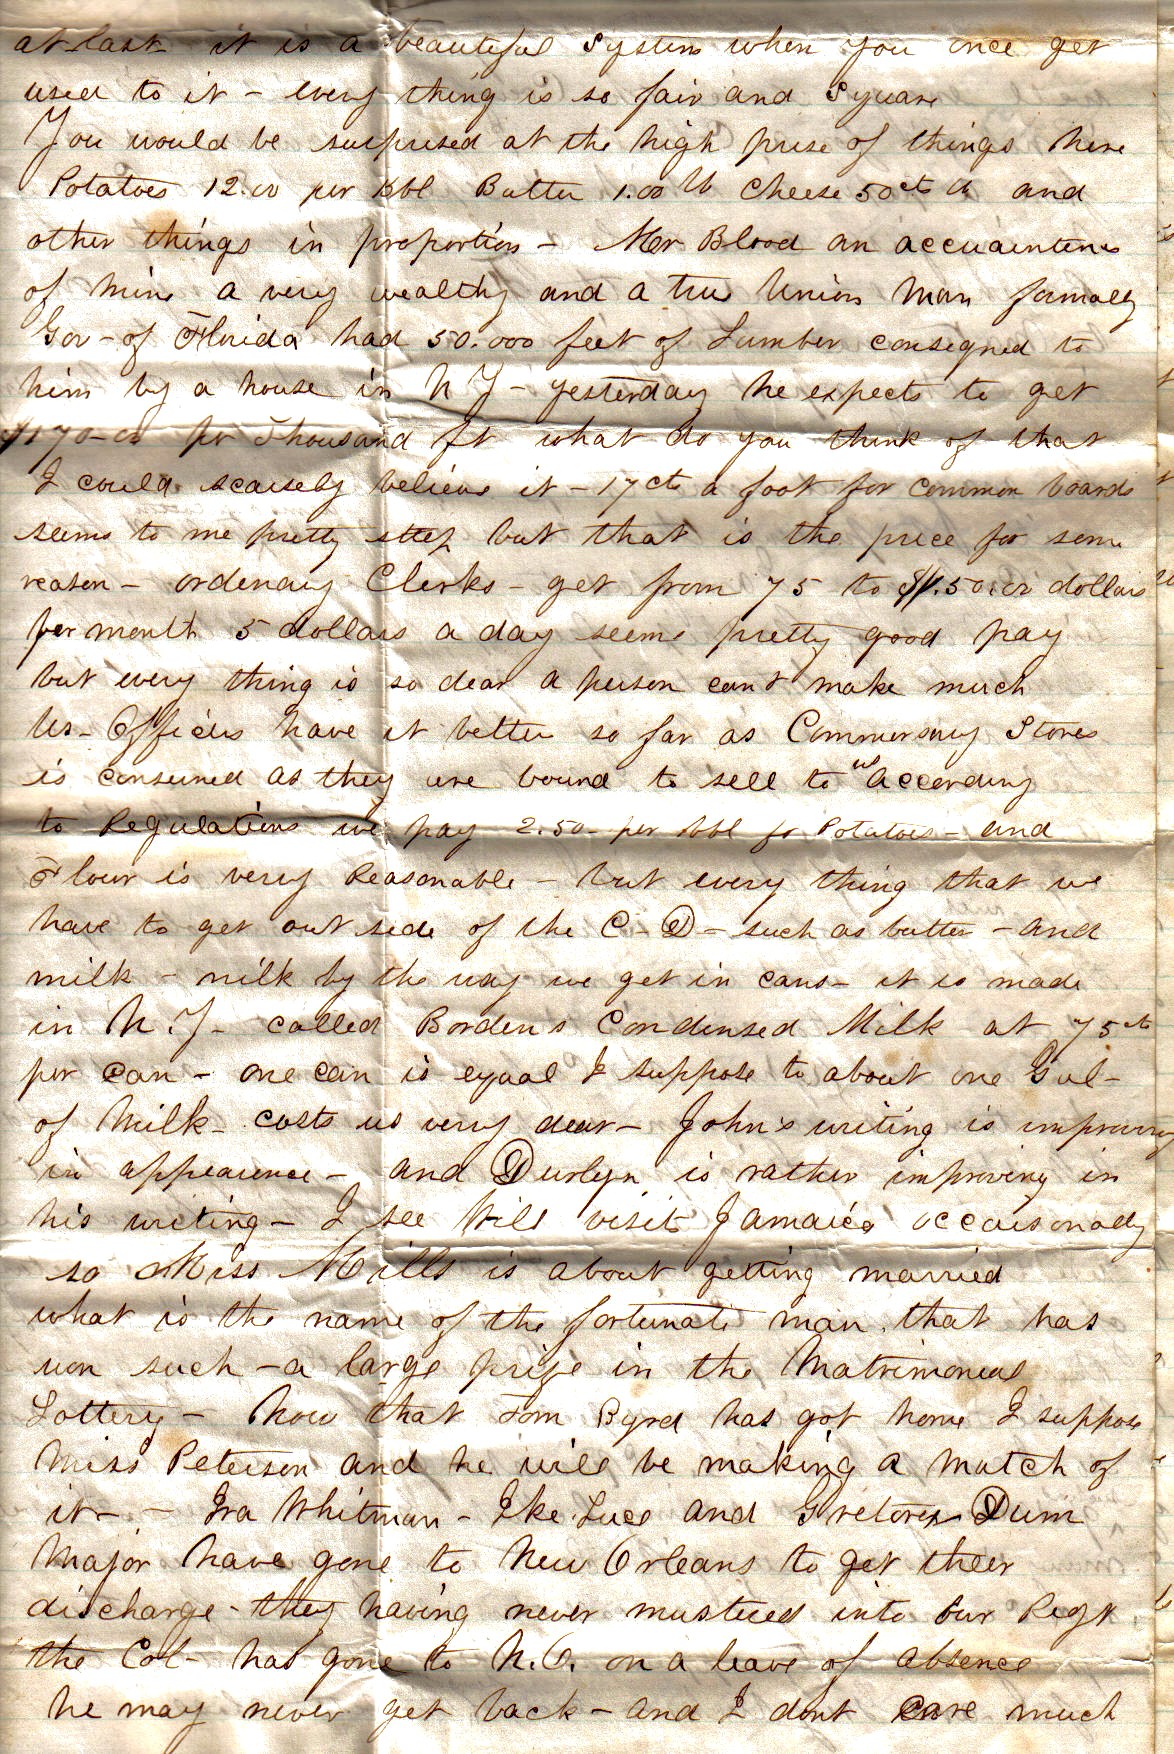 at last it is a beautiful System when you once get
used to it - every thing is so fair and Square
You would be surprised at the high price of things here
Potatoes 12.00 per Bbl Butter 1.00 lb Cheese 50cts lb and
other things in proportion - Mr Blood an accuaintence
of mine a very wealthy and a true Union Man formally
Gov - of Florida had 50.000 feet of Lumber consegned to
him by a house in N Y - yesterday he expects to get
$170-00 pr Thousand ft what do you think of that
I could scarsely believe it - 17cts a foot for common boards
seems to me pretty steep but that is the price for some
reason - ordenary Clerks - get from 75 to $1.50.00 dollars
per month 5 dollars a day seems pretty good pay
but every thing is so dear a person cant make much
Us - Officers have it better so far as Commersary Stores
is conserned as they are bound to sell to us According
to Regulations we pay 2.50 - per bbl for Potatoes - and
Flour is very Reasonable - but every thing that we
have to get out side of the C - D - such as butter - and
milk - milk by the way we get in cans - it is made
in N.Y - called Borden s Condensed Milk at 75cts
per can - one can is equal I suppose to about one Gal -
of Milk - costs us very dear - John's writing is improving
in appearence - and Durlyn is rather improving in
his writing - I see Will visits Jamaica occaisonally
so Miss Mills is about getting married
what is the name of the fortunate man that has
won such - a large prize in the Matrimonial
Lottery - Now that Tom Byrd has got home I suppose
Miss Peterson and he will be making a match of
it - - Ira Whitman - Ike Luce and Dum
Major have gone to New Orleans to get theer
discharge - they having never mustered into Our Regt.
the Col - has gone to N.O. on a leave of absence
he may never get back - and I dont care much